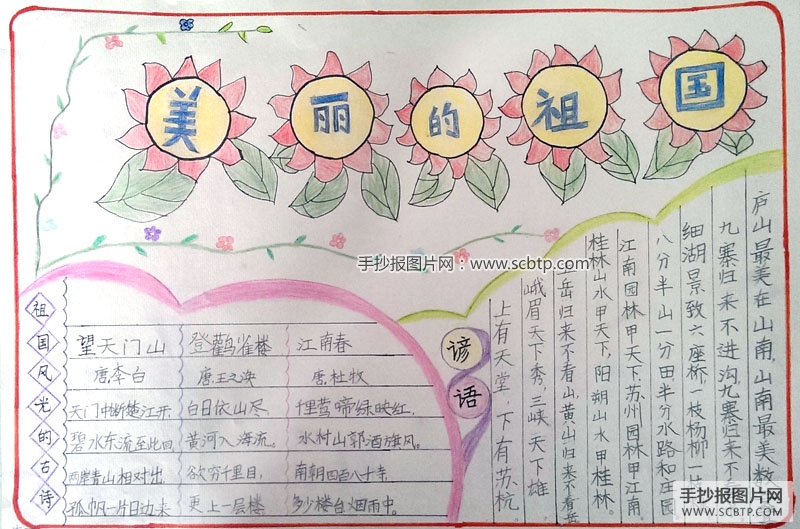 美丽的祖国
手抄报图片网：www.scbtp.com
祖国风光的古诗
望天门山
唐.李白
天门中断楚江开,
碧水东流至此回
两岸青山相对出
孤帆一片日边来
登鹳雀楼
唐.王之涣
白日依山尽,
黄河入海流。
欲穷千里目,
更上一层楼
江南春
唐.杜牧
千里莺啼绿映红,
水村山郭酒旗风。
南朝四百八十寺
多少楼台烟雨中。
谚语
庐山最美在山南,山南最美数
九寨归来不进沟,九寨归来不看
细湖景致六座桥,一枝杨柳一
八分半山一分田,半分水路和庄园
江南园林甲天下,苏州园林甲江南
桂林山水甲天下,阳朔山水甲桂林。
岳归来不看山,黄山归来不看岳
峨眉天下秀,三峡天下雄
上有天堂,下有苏杭
手抄报图片网
WWW.SCBTP.COM